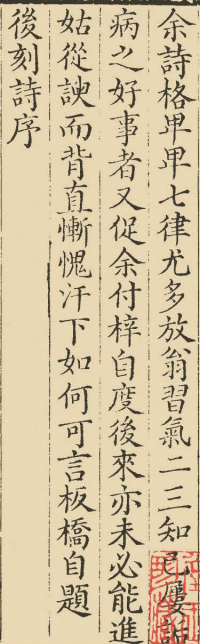 余詩格卑卑七律尤多放翁習氣二三知己屢詬
病之好事者又促余付梓自度後來亦未必能進
姑從諛而背直慚愧汗下如何可言板橋自題
後刻詩序